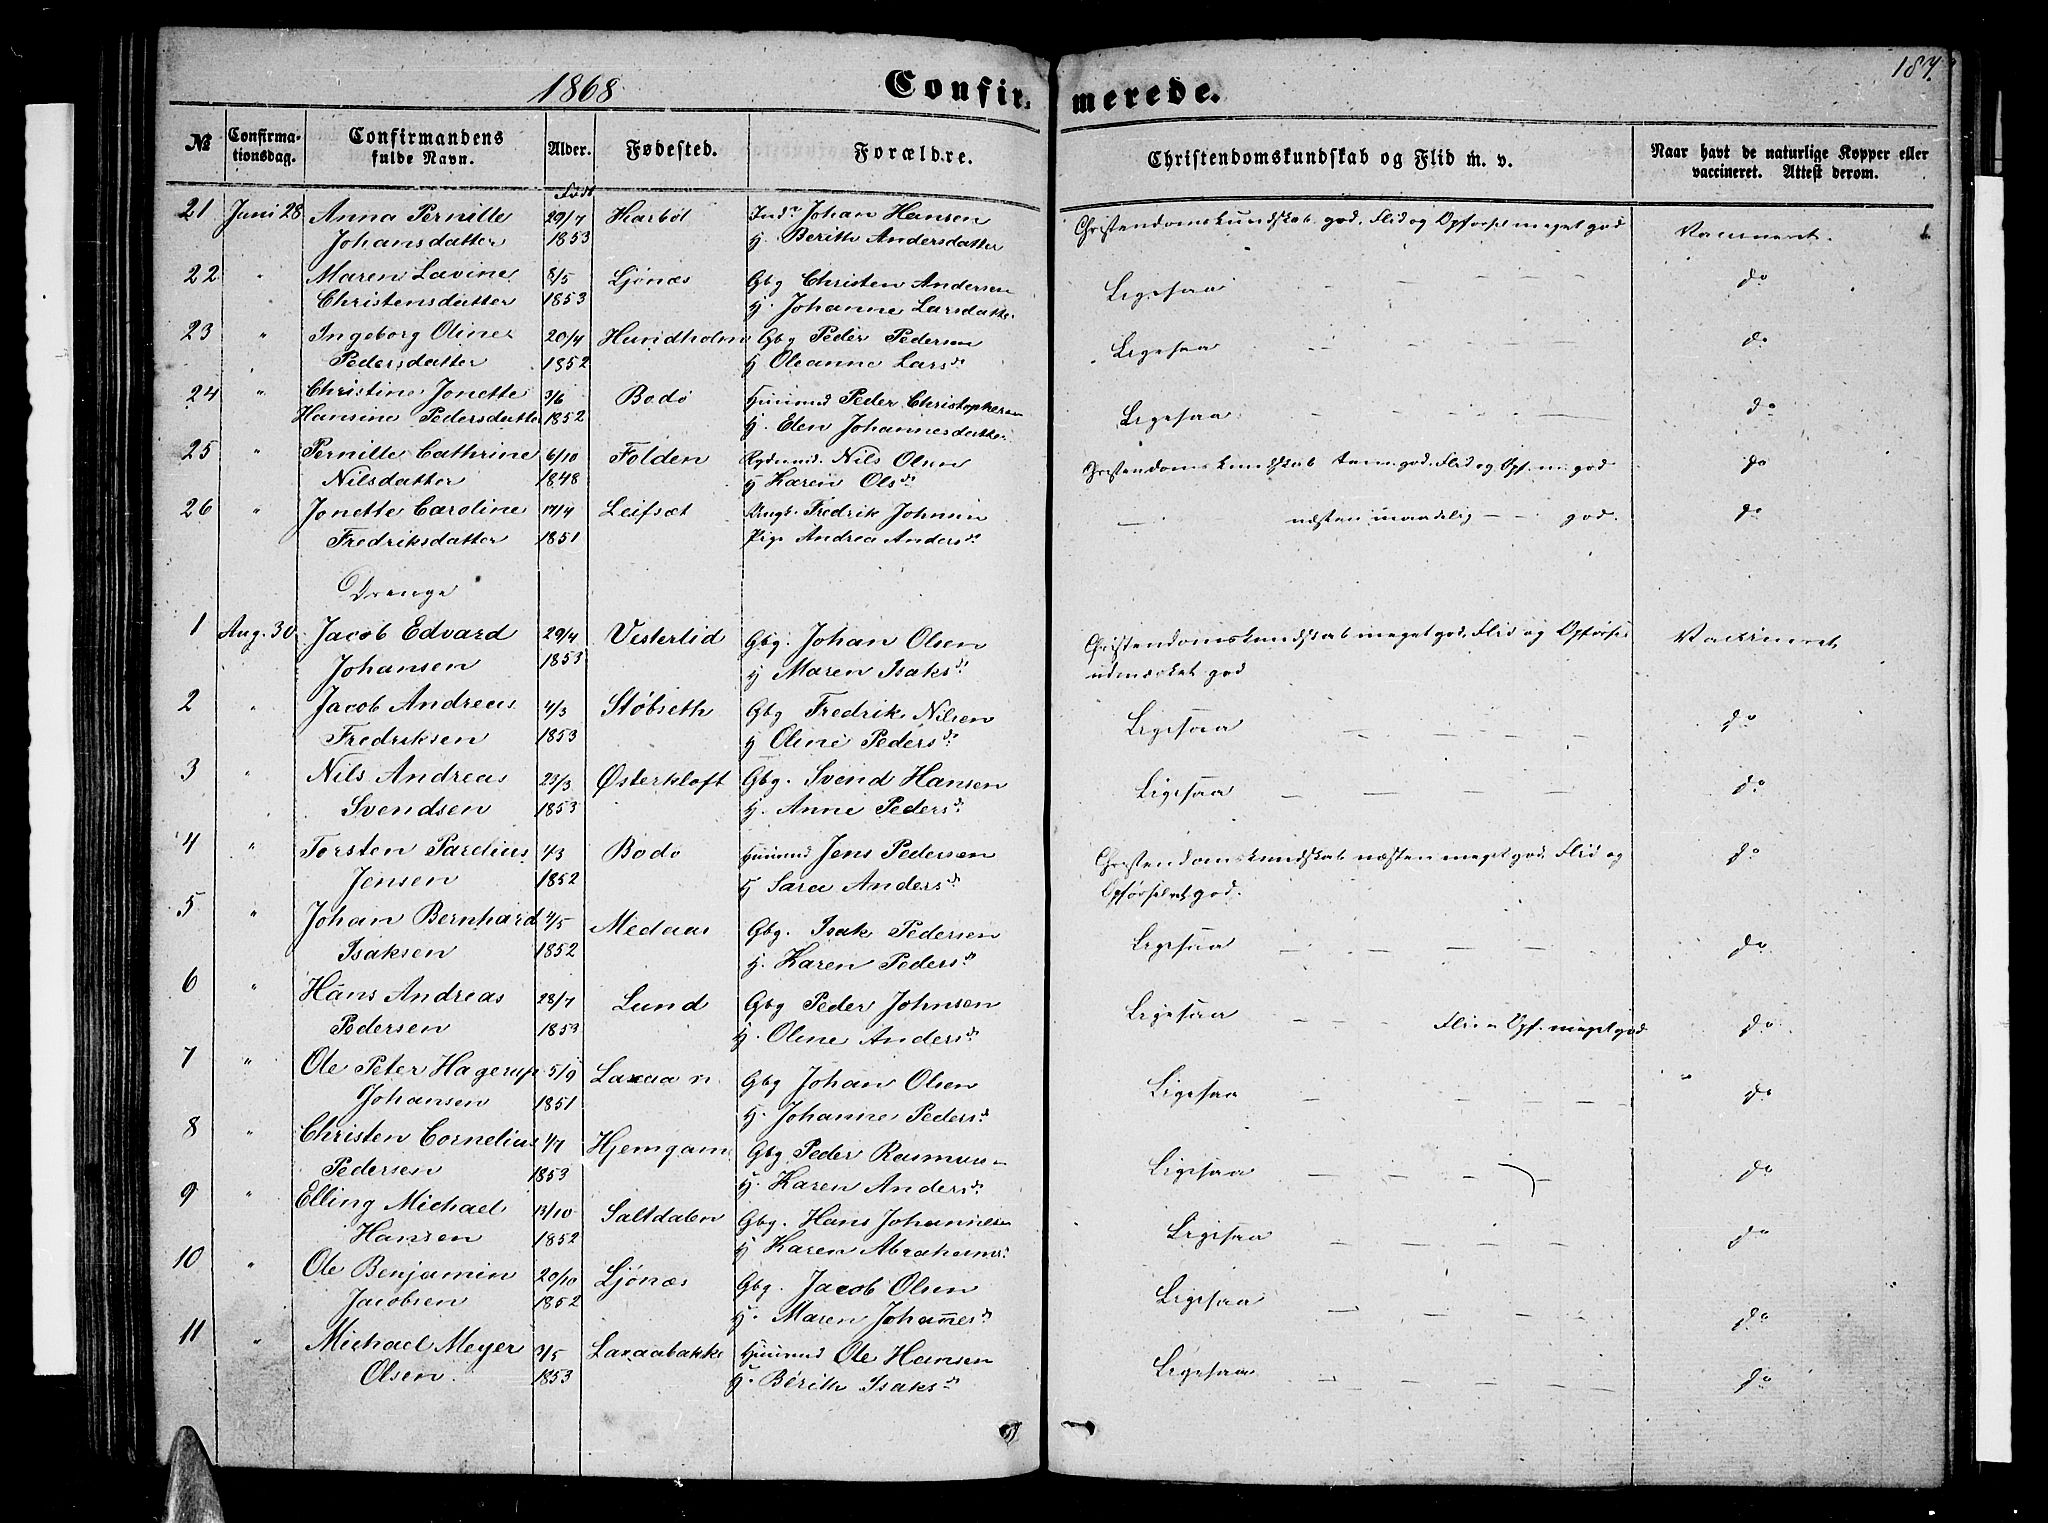 1868 Confirmerede. 187.
№ Confirmationsdag. Confirmandens fulde Navn. Alder. Fødested. Forældre. Christendomskundskab og Flid m. v. Naar havt de naturlige Kopper eller vaccineret. Attest derom.
Født
21 Juni 28 Anna Pernille 29/7 Harbøl Inds Johan Hansen Christendomskundskab god, Flid og Opførsel meget god Vaccineret.
Johansdatter 1853 H. Berith Andersdatter
22 " Maren Lavine 8/5 Ljønæs Gbg Christen Andersen Ligesaa — — — — do
Christensdatter 1853 H. Johanne Larsdatter
23 " Ingeborg Oline 20/4 Hundholm Gbg Peder Pedersen Ligesaa — — — — do
Pedersdatter 1852 H Oleanne Larsdr
24 " Christine Jonette 3/6 Bodø Huusmd Peder Christophersen Ligesaa — — — — do
Hansine Pedersdatter 1852 H. Elen Johannesdatter
25 " Pernille Cathrine 6/10 Folden Nils Olsen Christendomskundskab god, Flid og Opf. m. god do
Nilsdatter 1848 H Karen Olsdr
26 " Jonette Caroline 17/4 Leifset Ungk. Fredrik Johnsen — næsten maadelig — — god. do
Fredriksdatter 1851 Pige Andrea Andersdr
Drenge
1 Aug. 30 Jacob Edvard 29/4 Vesterlid Gbg. Johan Olsen Christendomskundskab meget god, Flid og Opførsel Vaccineret
Johansen 1853 H Maren Isaksdr udmærket god
2 " Jacob Andreas 4/3 Støbseth Gbg Fredrik Nilsen Ligesaa — — — — do
Fredriksen 1853 H Oline Pedersdr
3 " Nils Andreas 23/3 Østerkløft Gbg. Svend Hansen Ligesaa — — — — do
Svendsen 1853 H. Anne Pedersdr
4 " Torsten Parelius 4/3 Bodø Huusmd Jens Pedersen Christendomskundskab næsten meget god, Flid og do
Jensen 1852 H Sara Andersdr Opførsel god.
5 " Johan Bernhard 4/5 Medaas Gbg. Isak Pedersen Ligesaa — — — — do
Isaksen 1852 H. Karen Pedersdr
6 " Hans Andreas 28/7 Lund Gbg Peder Johnsen Ligesaa — — — Flid o Opf. meget god do
Pedersen 1853 H. Oline Andersdr
7 " Ole Peter Hagerup 5/9 Laxaa n. Gbg Johan Olsen Ligesaa — — — — do
Johansen 1851 H. Johanne Pedersdr
8 " Christen Cornelius 4/7 Hjemgam Gbg Peder Rasmussen Ligesaa — — — — do
Pedersen 1853 H. Karen Andersdr
9 " Elling Michael 13/10 Saltdalen Gbg. Hans Johannesen Ligesaa — — — — do
Hansen 1852 H Karen Abrahamsdr
10 " Ole Benjamin 20/10 Ljønæs Gbg. Jacob Olsen Ligesaa — — — — do
Jacobsen 1852 H. Maren Johannesdr
11 " Michael Meyer 3/5 Laxaabakke Huusmd Ole Hansen Ligesaa — — — — do
Olsen. 1853 H. Berith Isaksdr